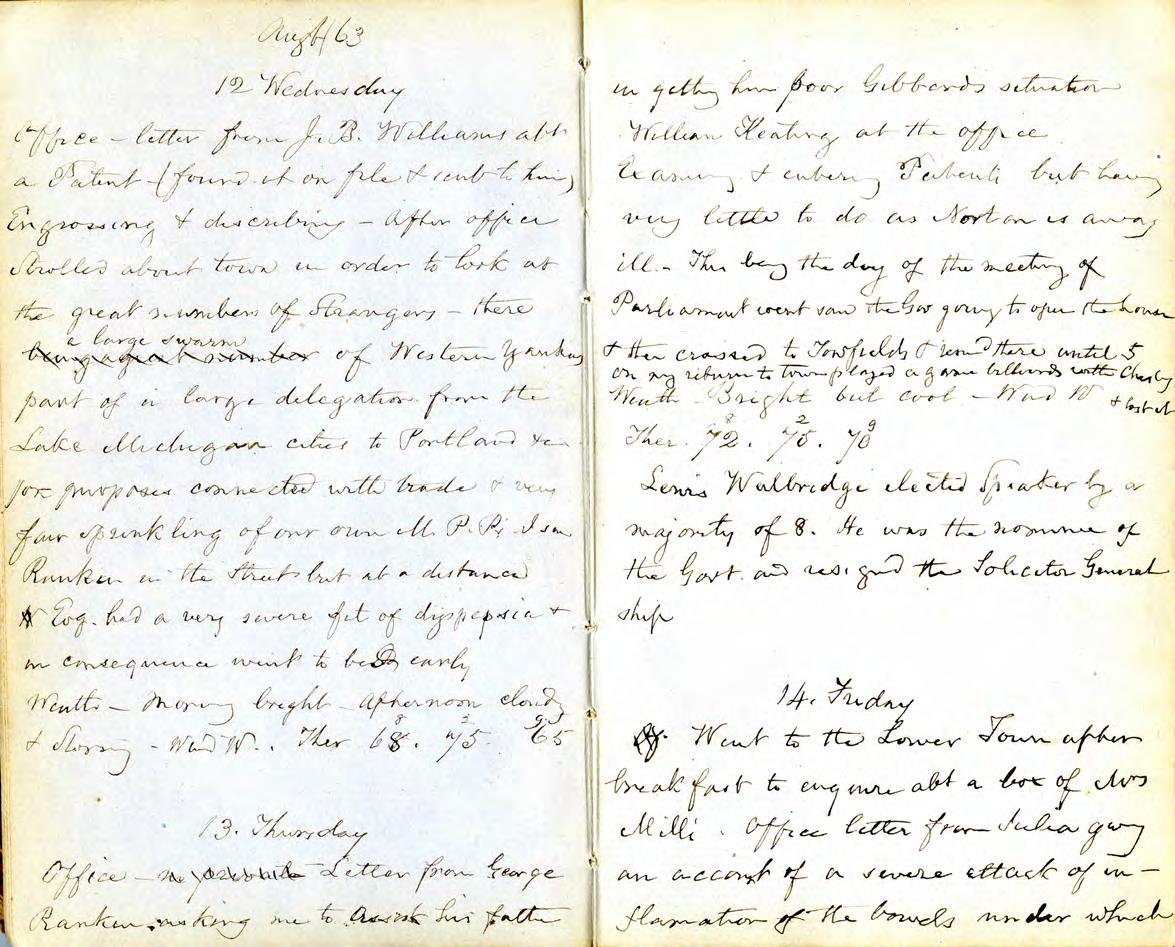 Augt/63
12 Wednesday
Office - letter from J. B. Williams abt
a Patent - (found it on file & sent to him)
Engrossing & discribing - After office
Strolled about town in order to look at
the great numbers of Strangers - there
a large swarm
being a great number of Western Yankees
part of a large delegation from the
Lake Michigan cities to Portland &c
for purposes connected with trade & very
fair sprinkling of our own M. P. Ps. I saw
Ranken in the Street but at a distance
Evg. had a very severe fit of dyspepsia &
in consequence went to bed early
Weath - Morning bright - Afternoon cloudy
& Storm - Wind W. Ther 68. 75. 65
8 2 9
13. Thursday
Office - no private Letter from George
Ranken asking me to assist his father
in getting him poor Gibbard's situation
William Keating at the office
Examing & entering Patents but having
very little to do as Norton is away
ill. - This being the day of the meeting of
Parliament went saw the Gov going to open the house
& then crossed to Towfields & remd there until 5
on my return to town played a game billiards with Charley
& lost it
Weath - Bright but cool - Wind W
8 2 9
Ther. 72. 75. 70
Lewis Walbridge elected Speaker by a
majority of 8. He was the nominee of
the Govt. and resigned the Solicitor General
ship
14. Friday
Went to the Lower Town after
breakfast to enquire abt a box of Mrs
Mills. Office letter from Julia giving
an account of a severe attack of in-
flamation of the bowels under which